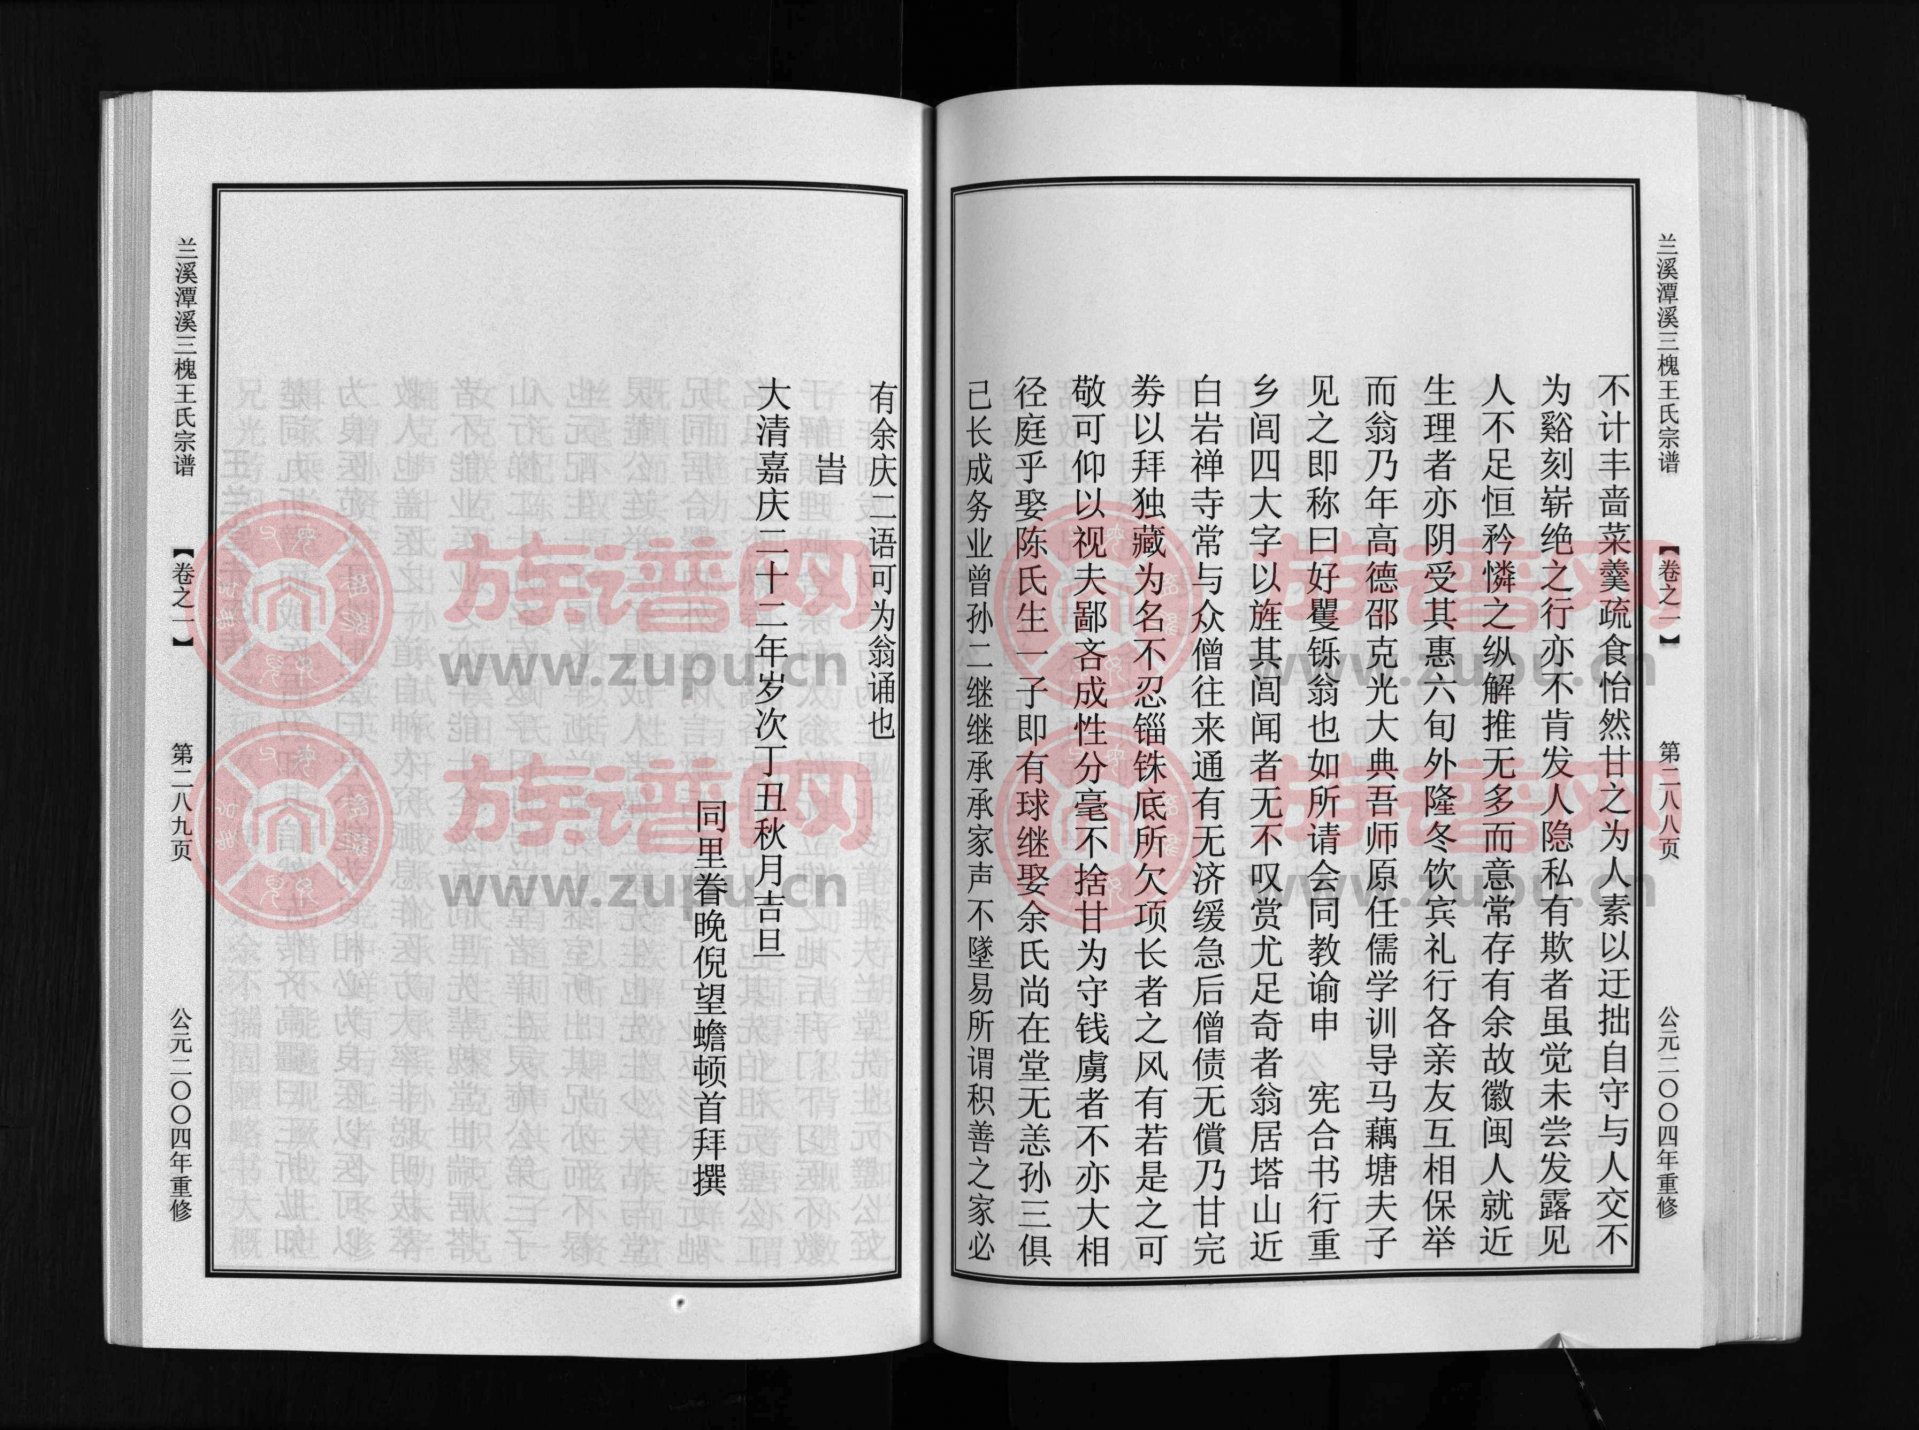 兰溪潭溪三槐王氏宗谱 【卷之一】 第二八八页 公元二〇〇四年重修
不计丰啬菜羹疏食怡然甘之为人素以迂拙自守与人交不
为谿刻崭绝之行亦不肯发人隐私有欺者虽觉未尝发露见
人不足恒矜憐之纵解推无多而意常存有余故徽闽人就近
生理者亦阴受其惠六旬外隆冬饮宾礼行各亲友互相保举
而翁乃年高德邵克光大典吾师原任儒学训导马藕塘夫子
见之即称曰好矍铄翁也如所请会同教谕申　宪合书行重
乡闾四大字以旌其闾闻者无不叹赏尤足奇者翁居塔山近
白岩禅寺常与众僧往来通有无济缓急后僧债无償乃甘完
券以拜独藏为名不忍锱铢底所欠项长者之风有若是之可
敬可仰以视夫鄙吝成性分毫不捨甘为守钱虏者不亦大相
径庭乎娶陈氏生一子即有球继娶余氏尚在堂无恙孙三俱
已长成务业曾孙二继继承承家声不墜易所谓积善之家必
有余庆二语可为翁诵也
旹
大清嘉庆二十二年岁次丁丑秋月吉旦
同里眷晚倪望蟾顿首拜撰
兰溪潭溪三槐王氏宗谱 【卷之一】 第二八九页 公元二〇〇四年重修
族谱网
www.zupu.cn
族谱网
www.zupu.cn
族谱网
www.zupu.cn
族谱网
www.zupu.cn